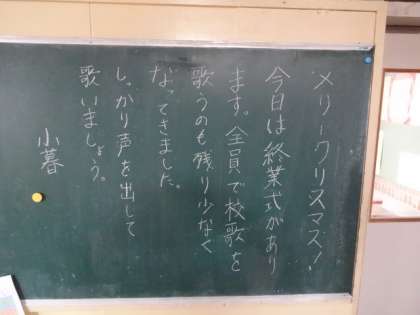 メリークリスマス!
今日は終業式があり
ます。全員で校歌を
歌うのも残り少なく
なってきました。
しっかり声を出して
歌いましょう。
小暮